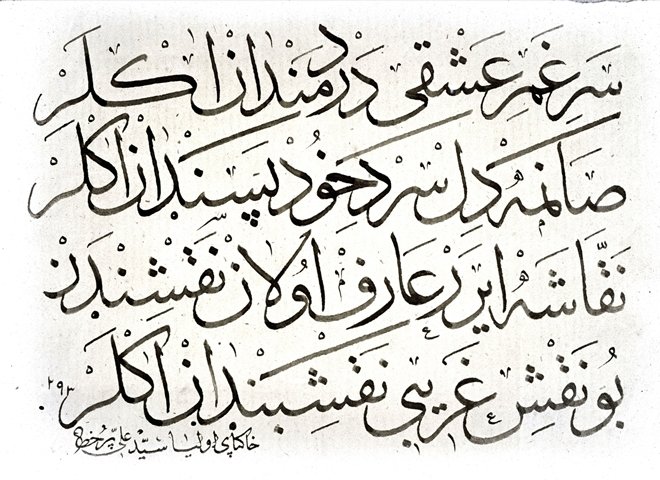 سر غم عشقی دردمندان اکلر
صانمه دل سرد خودپسندان اکلر
نقاشه ایرر عارف اولان نقشندن
بو نقش غریبی نقشبندان اکلر
خاکپای اولیا سید علی